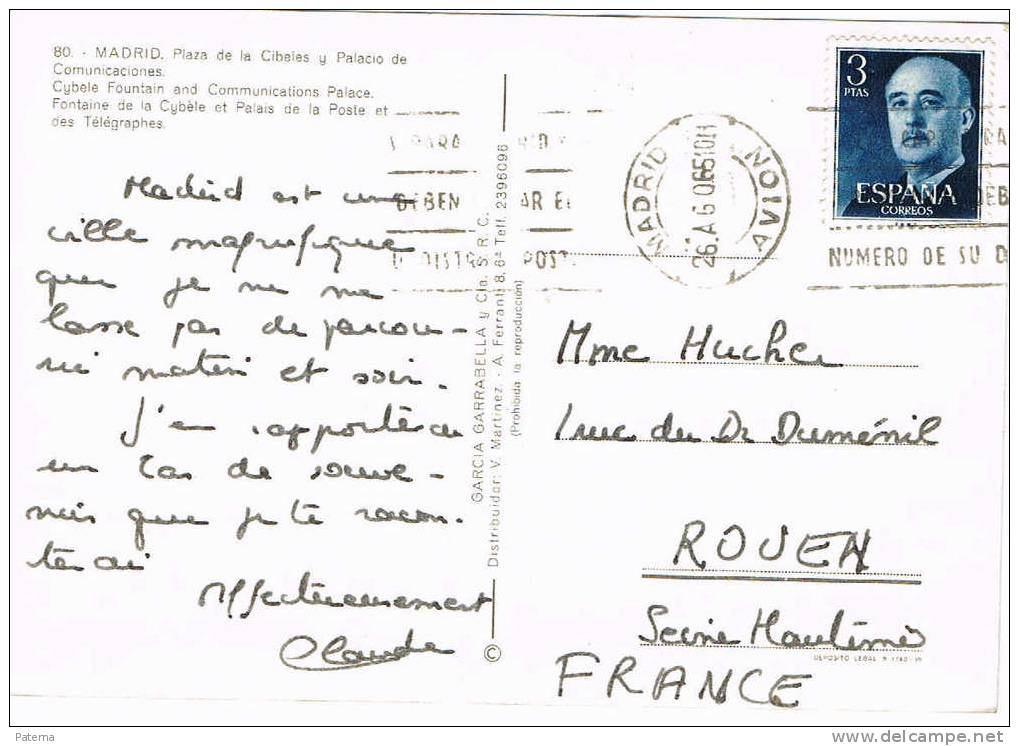 80. - MADRID. Plaza de la Cibeles y Palacio de
Comunicaciones.
Cybele Fountain and Communications Palace.
Fontaine de la Cybèle et Palais de la Poste et
des Télégraphes.
Madrid est une
ville magnifique
que je ne me
lasse pas de parcou-
rir matin et soir.
J'en rapporterai
un tas de souve-
nirs que je te racon-
terai
Affectueusement
Claude
GARCIA GARRABELLA y Cía. S.R.C.
Distribuidor: V. Martínez. - A. Ferrant, 8, 6ª Telf. 2396096
(Prohibida la reproducción)
©
MADRID AVION
26.AGO.65
3
PTAS
ESPAÑA
CORREOS
PARA
DEBEN
DISTR POST
NUMERO DE SU D
Mme Hucher
1 rue du Dr Duménil
ROUEN
Seine Maritime
FRANCE
DEPOSITO LEGAL B
Paterna
www.delcampe.net